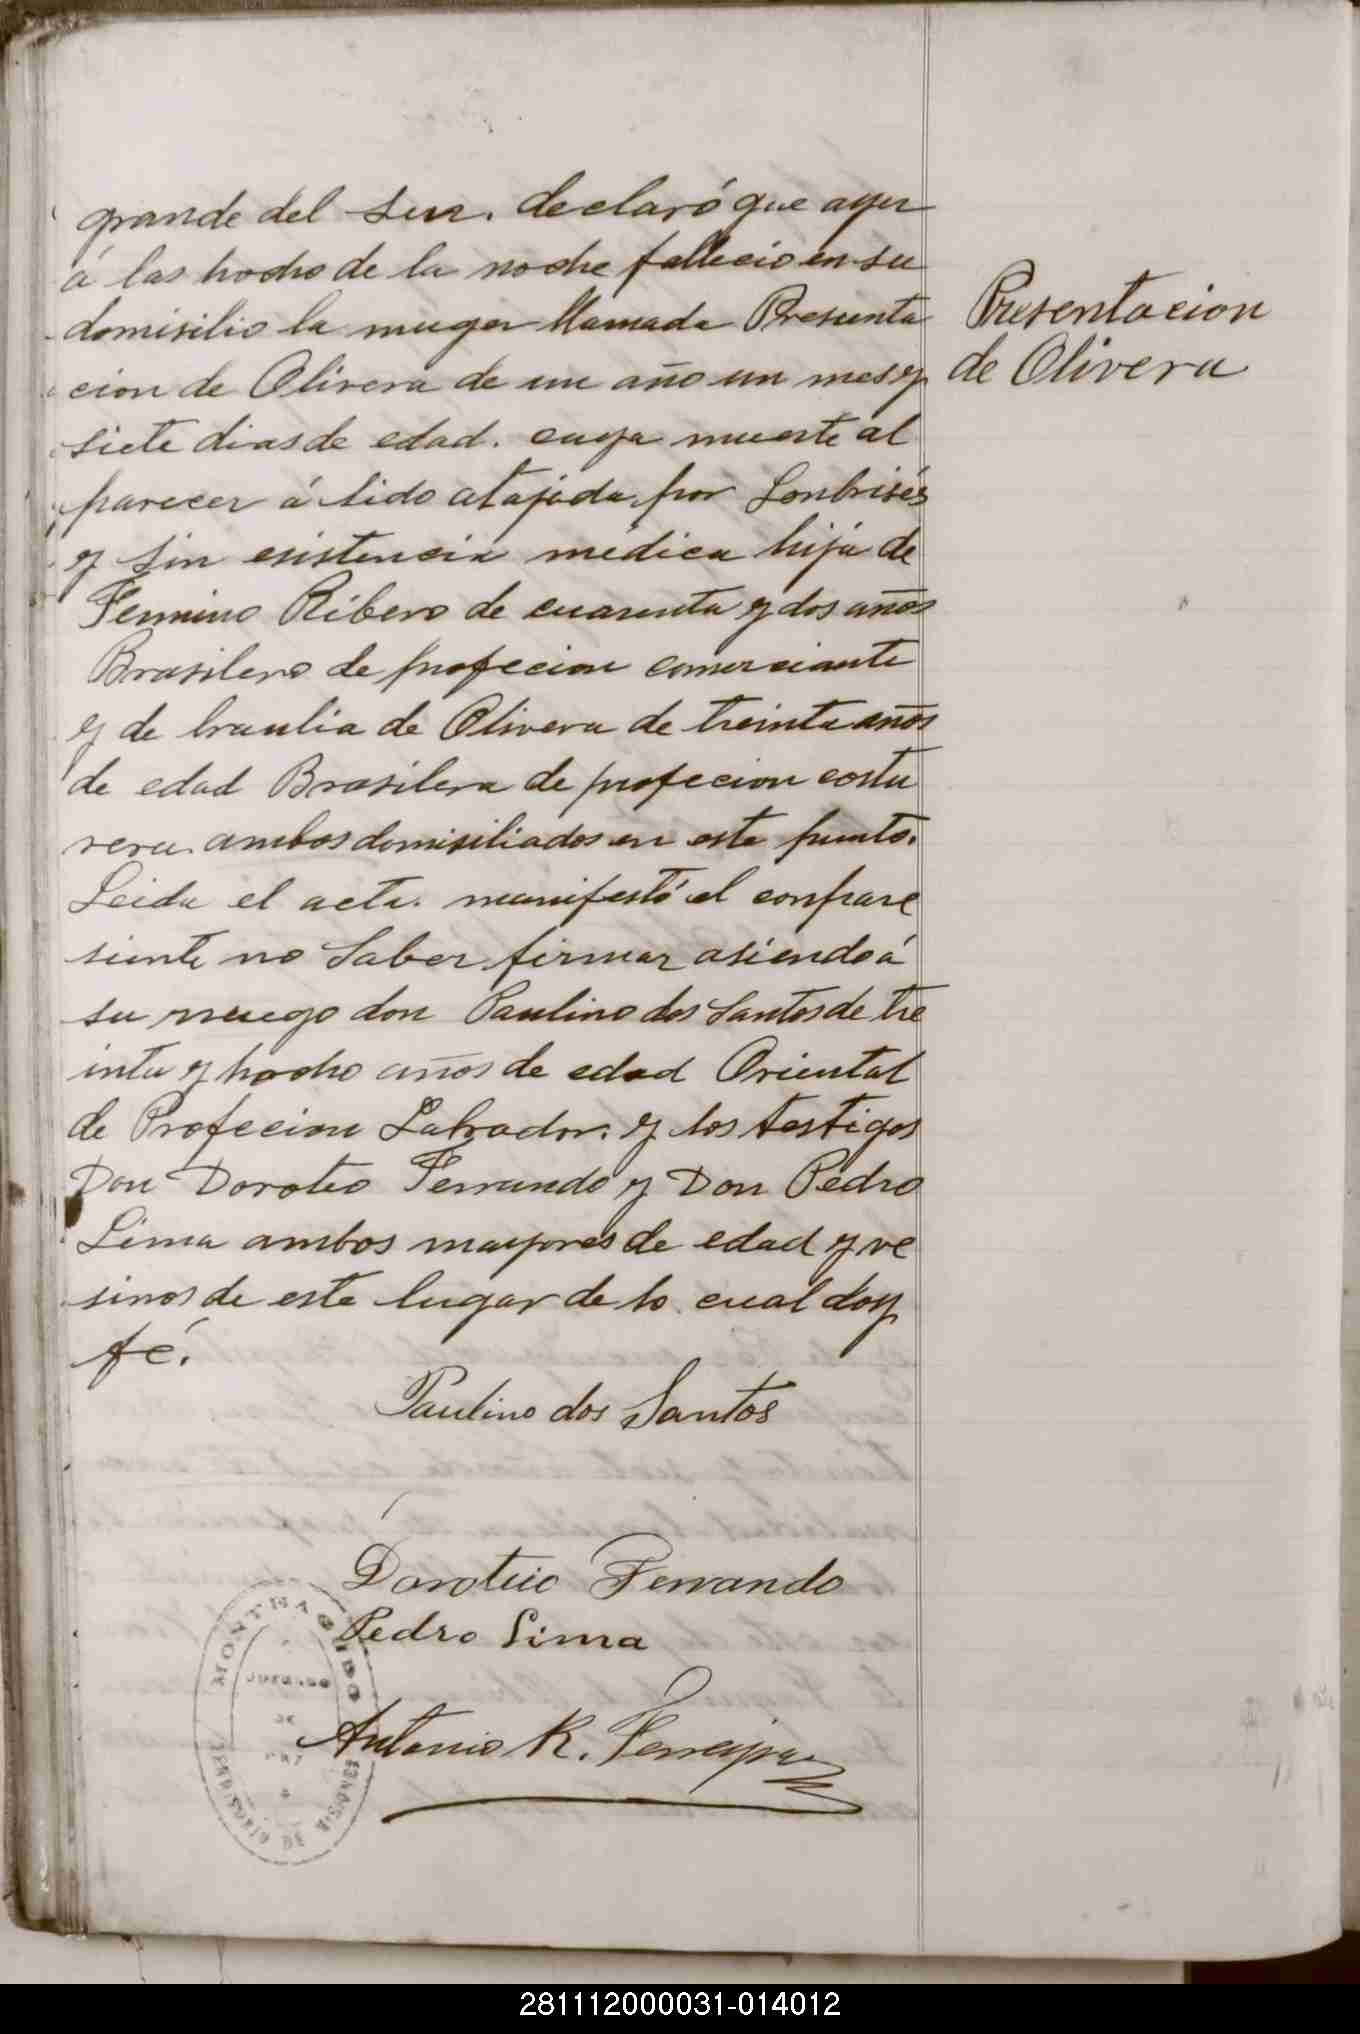 grande del Sur. declaró que ayer
á las hocho de la noche fallecio en su
domisilio la muger llamada Presenta
cion de Olivera de un año un mes y
siete dias de edad. cuya muerte al
parecer á sido atajada por Lonbrises
y sin esistencia médica hija de
Fermino Ribero de cuarenta y dos años
Brasilero de profecion comerciante
y de braulia de Olivera de treinta años
de edad Brasilera de profecion costu
rera. ambos domisiliados en este punto.
Leida el acta. manifestó el conpare
siente no Saber firmar asiendo á
su ruego don Paulino dos Santos de tre
inta y hocho años de edad Oriental
de Profecion Labrador. y los testigos
Don Doroteo Ferrando y Don Pedro
Lima ambos mayores de edad y ve
sinos de este lugar de lo cual doy
fé.
Presentacion
de Olivera
Paulino dos Santos
Doroteio Ferrando
Pedro Lima
Antonio R. Ferreyra
JUZGADO
DE
PAZ
281112000031-014012